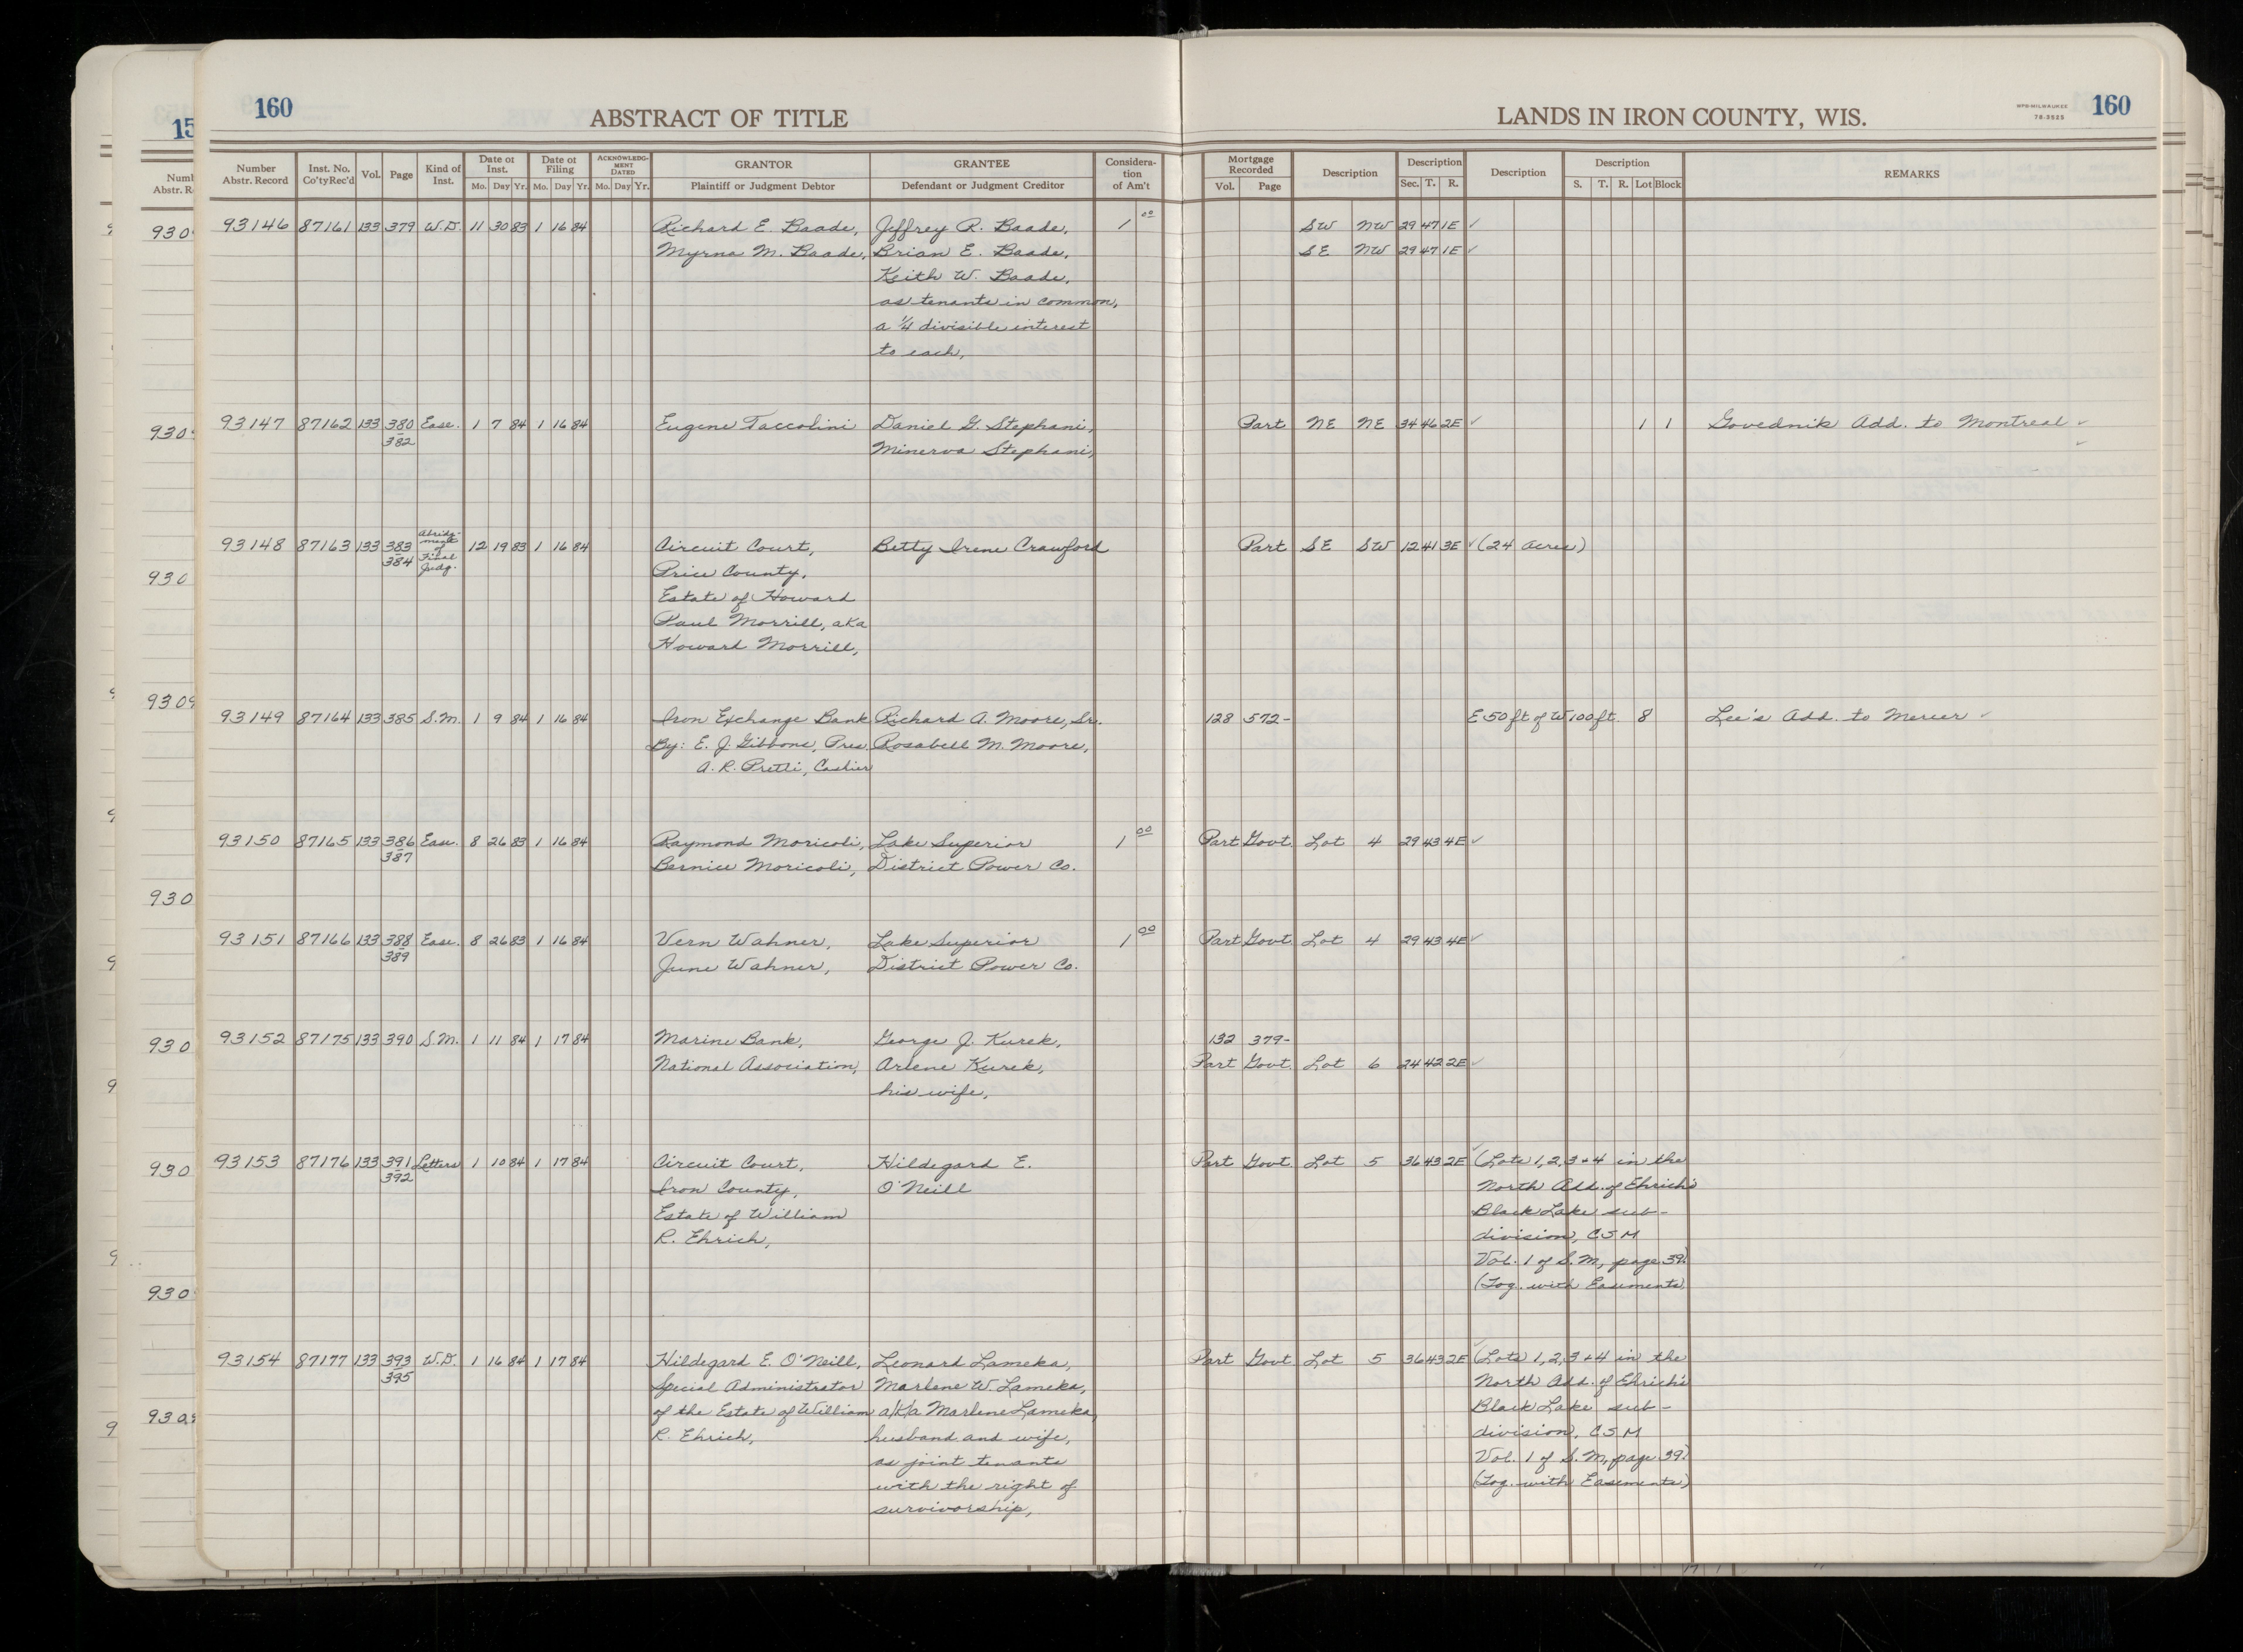 160
ABSTRACT OF TITLE
LANDS IN IRON COUNTY, WIS.
MPB-MILWAUKEE
78-3525
160
Number Abstr. Record | Inst. No. Co'ty Rec'd | Vol. | Page | Kind of Inst. | Date of Inst. Mo. Day Yr. | Date of Filing Mo. Day Yr. | ACKNOWLEDGMENT DATED Mo. Day Yr. | GRANTOR Plaintiff or Judgment Debtor | GRANTEE Defendant or Judgment Creditor | Consideration of Am't | Mortgage Recorded Vol. Page | Description | Description Sec. T. R. | Description | Description S. T. R. Lot Block | REMARKS
93146 87161 133 379 W.D. 11 30 83 1 16 84 Richard E. Baade, Jeffrey R. Baade, 1 00 SW NW 29 47 1E ✓
Myrna M. Baade, Brian E. Baade, SE NW 29 47 1E ✓
Keith W. Baade,
as tenants in common,
a 1/4 divisible interest
to each,
93147 87162 133 380 Ease. 1 7 84 1 16 84 Eugene Taccolini Daniel G. Stephani, Part NE NE 34 46 2E ✓ 1 1 Govednik Add. to Montreal ✓
382 Minerva Stephani, ✓
93148 87163 133 383 Abridg-ment of Final Judg. 12 19 83 1 16 84 Circuit Court, Betty Irene Crawford Part SE SW 12 41 3E ✓ (24 acres)
384 Price County,
Estate of Howard
Paul Morrill, aka
Howard Morrill,
93149 87164 133 385 S.M. 1 9 84 1 16 84 Iron Exchange Bank Richard A. Moore, Sr. 128 572- E 50 ft of W 100 ft. 8 Lee's Add. to Mercer ✓
By: E. J. Gibbons, Pres. Rosabell M. Moore,
A. R. Pretti, Cashier
93150 87165 133 386 Ease. 8 26 83 1 16 84 Raymond Moricoli, Lake Superior 1 00 Part Govt. Lot 4 29 43 4E ✓
387 Bernice Moricoli, District Power Co.
93151 87166 133 388 Ease. 8 26 83 1 16 84 Vern Wahner, Lake Superior 1 00 Part Govt. Lot 4 29 43 4E ✓
389 June Wahner, District Power Co.
93152 87175 133 390 S.M. 1 11 84 1 17 84 Marine Bank, George J. Kurek, 132 379-
National Association, Arlene Kurek, Part Govt. Lot 6 24 42 2E ✓
his wife,
93153 87176 133 391 Letters 1 10 84 1 17 84 Circuit Court, Hildegard E. Part Govt. Lot 5 36 43 2E ✓ (Lots 1, 2, 3 + 4 in the
392 Iron County, O'Neill North Add. of Ehrich's
Estate of William Black Lake sub-
R. Ehrich, division, CSM
Vol. 1 of S.M., page 39)
(Tog. with Easements)
93154 87177 133 393 W.D. 1 16 84 1 17 84 Hildegard E. O'Neill, Leonard Lameka, Part Govt Lot 5 36 43 2E ✓ (Lots 1, 2, 3 + 4 in the
395 Special Administrator Marlene W. Lameka, North Add. of Ehrich's
of the Estate of William a/k/a Marlene Lameka, Black Lake sub-
R. Ehrich, husband and wife, division, CSM
as joint tenants Vol. 1 of S.M., page 39)
with the right of (Tog. with Easements)
survivorship,